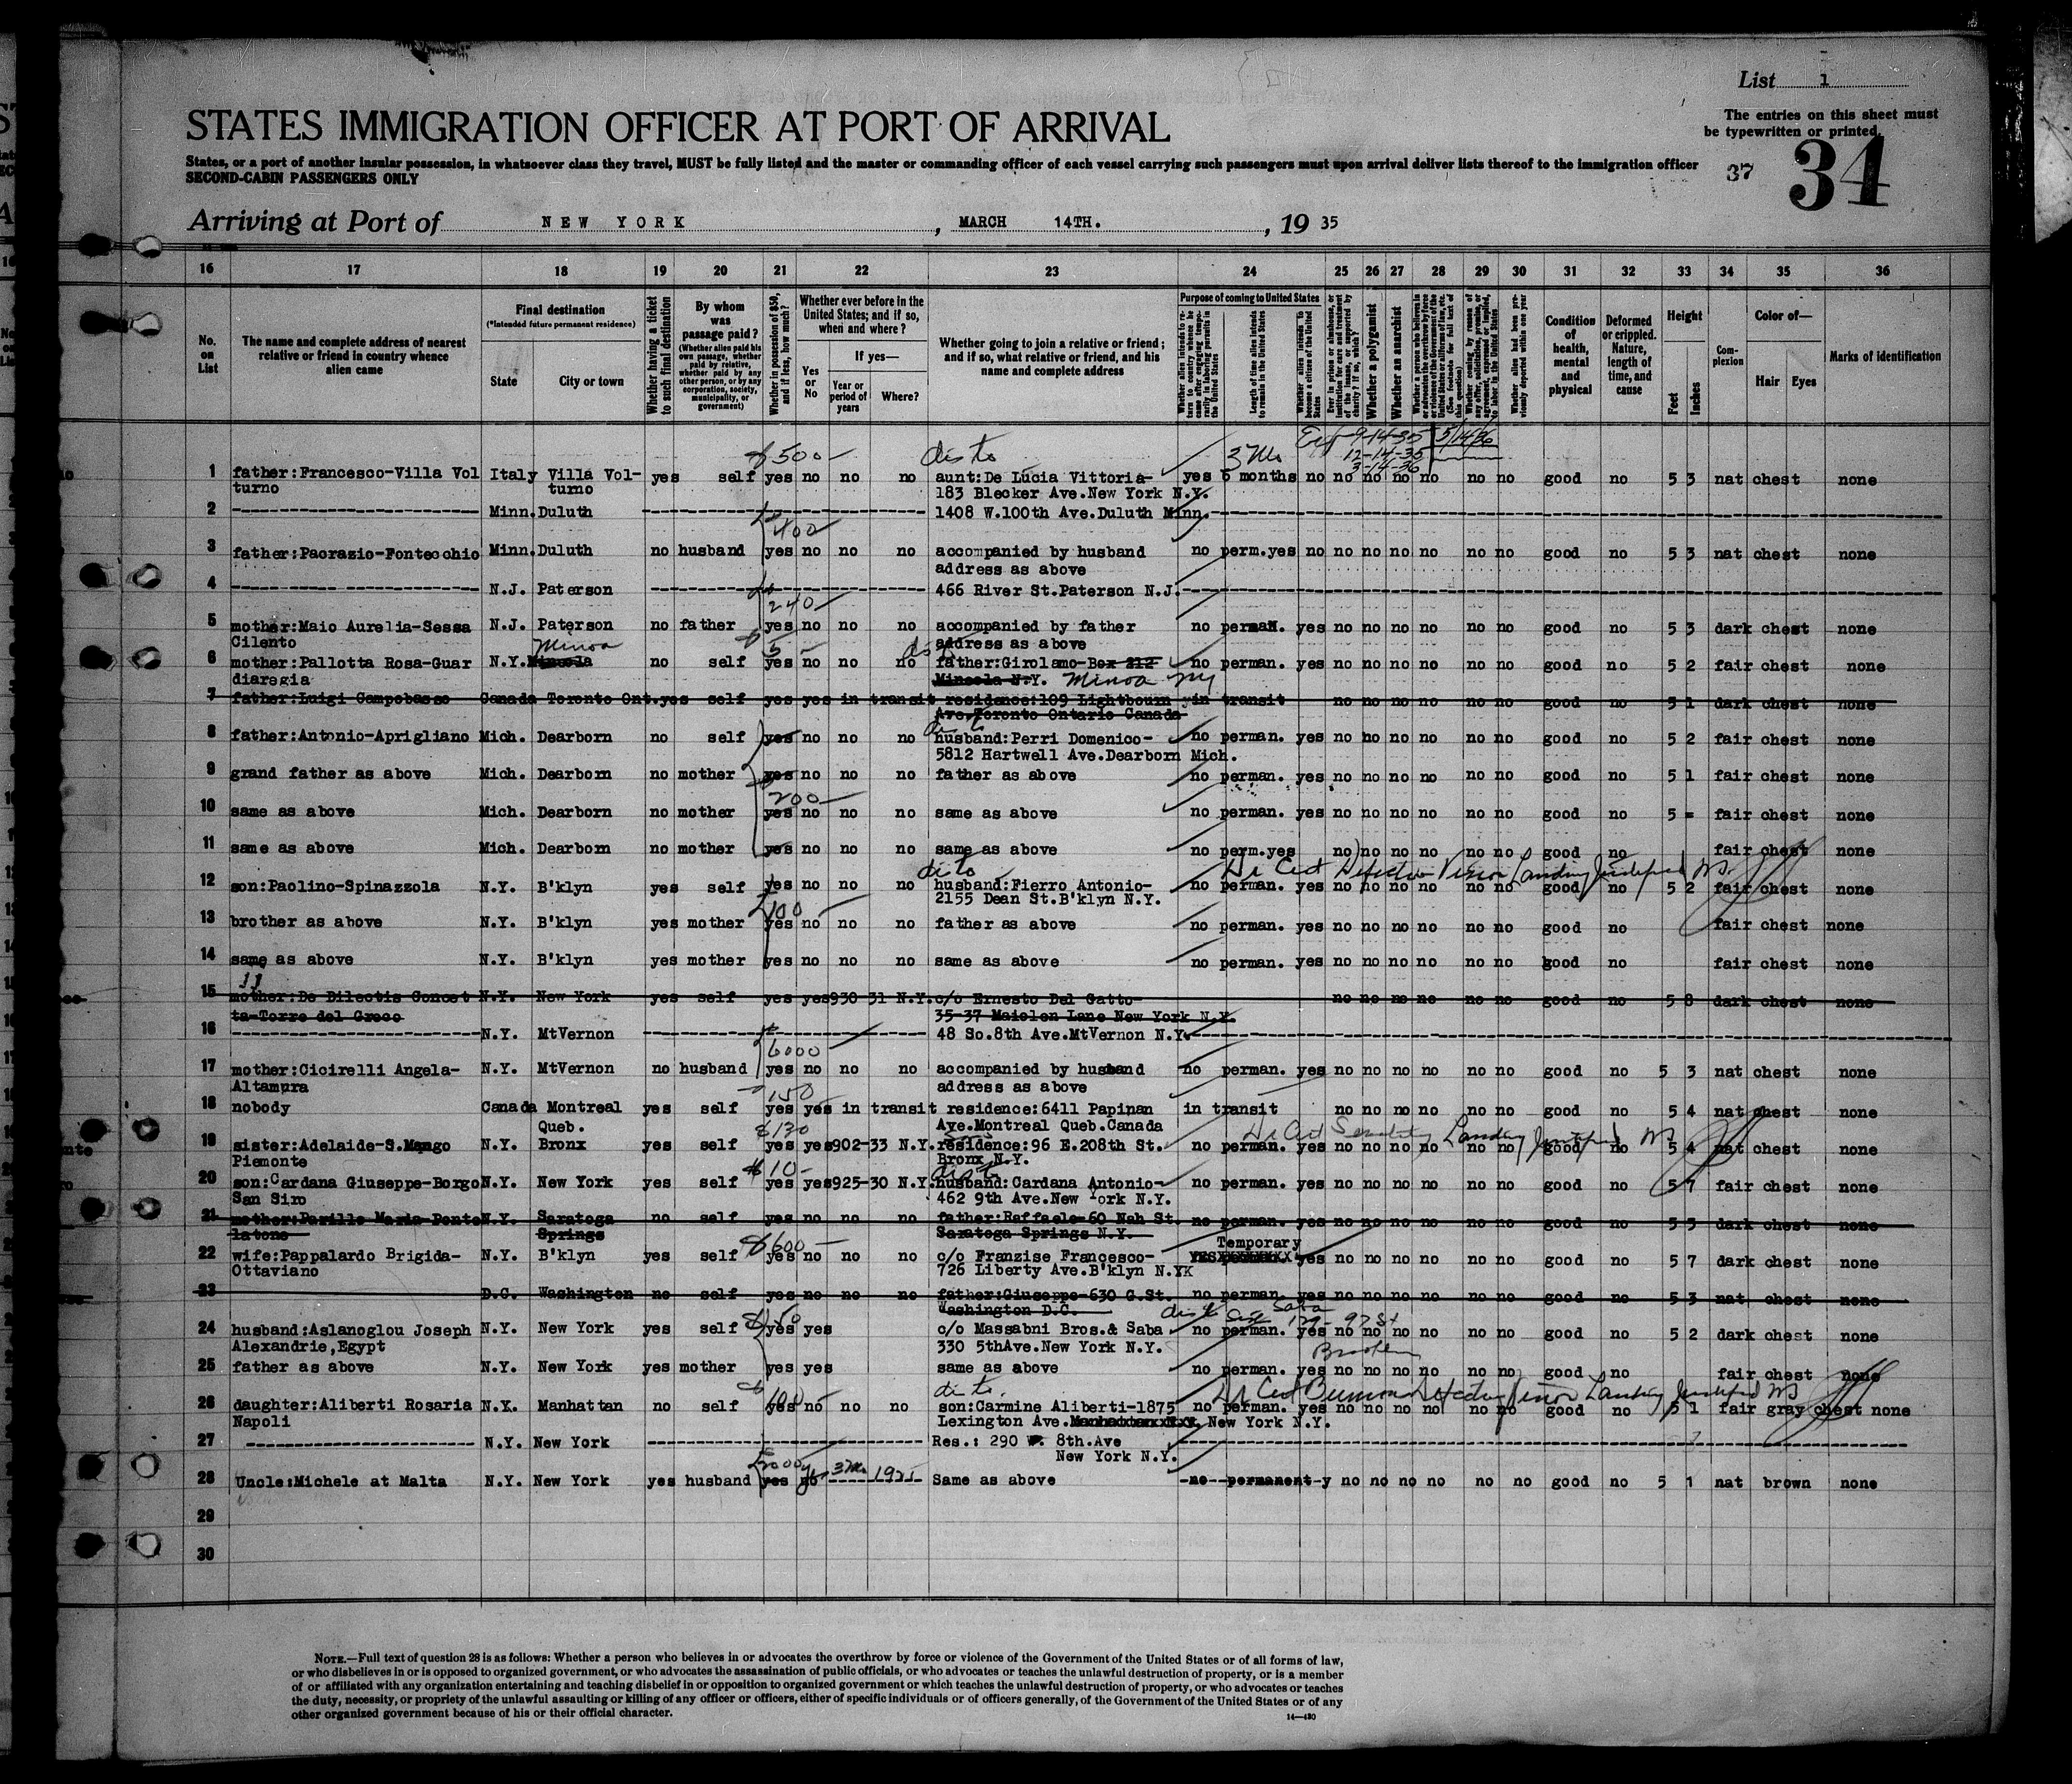 List 1
STATES IMMIGRATION OFFICER AT PORT OF ARRIVAL
The entries on this sheet must
be typewritten or printed.
States, or a port of another insular possession, in whatsoever class they travel, MUST be fully listed and the master or commanding officer of each vessel carrying such passengers must upon arrival deliver lists thereof to the immigration officer
SECOND-CABIN PASSENGERS ONLY
37 34
Arriving at Port of NEW YORK, MARCH 14TH., 19 35
16 17 18 19 20 21 22 23 24 25 26 27 28 29 30 31 32 33 34 35 36
No. on List
The name and complete address of nearest relative or friend in country whence alien came
Final destination
(*Intended future permanent residence)
State
City or town
Whether having a ticket to such final destination
By whom was passage paid?
(Whether alien paid his own passage, whether paid by relative, whether paid by any other person, or by any corporation, society, municipality, or government)
Whether in possession of $50, and if less, how much?
Whether ever before in the United States; and if so, when and where?
Yes or No
If yes—
Year or period of years
Where?
Whether going to join a relative or friend; and if so, what relative or friend, and his name and complete address
Purpose of coming to United States
Length of time alien intends to remain in the United States
Whether alien intends to become a citizen of the United States
Whether a polygamist
Whether an anarchist
Whether alien had been previously deported within one year
Condition of health, mental and physical
Deformed or crippled. Nature, length of time, and cause
Height
Feet
Inches
Complexion
Color of—
Hair
Eyes
Marks of identification
$500 3 Mo Ext 9-14-35 5/14/36
12-14-35
3-14-36
1 father:Francesco-Villa Vol Italy Villa Vol- yes self yes no no no aunt:De Lucia Vittoria- yes 6 months no no no no no no no good no 5 3 nat chest none
turno turno 183 Blecker Ave.New York N.Y.
2 Minn. Duluth 1408 W.100th Ave.Duluth Minn.
400
3 father:Paorazio-Fontecchio Minn. Duluth no husband yes no no no accompanied by husband no perm.yes no no no no no no no good no 5 3 nat chest none
address as above
4 N.J. Paterson 466 River St.Paterson N.J.
240
5 mother:Maio Aurelia-Sessa N.J. Paterson no father yes no no no accompanied by father no perman. yes no no no no no no good no 5 3 dark chest none
Cilento address as above
Minoa 5
6 mother:Pallotta Rosa-Guar N.Y. Mineola no self yes no no no father:Girolamo-Box 212 no perman. yes no no no no no no good no 5 2 fair chest none
diaregia Mineola N.Y. Minoa NY
7 father:Luigi Campobasso Canada Toronto Ont.yes self yes yes in transit residence:109 Lightbourn in transit no no no no no no good no 5 1 dark chest none
Ave.Toronto Ontario Canada
8 father:Antonio-Aprigliano Mich. Dearborn no self yes no no no husband:Perri Domenico- no perman. yes no no no no no no good no 5 2 fair chest none
5812 Hartwell Ave.Dearborn Mich.
9 grand father as above Mich. Dearborn no mother yes no no no father as above no perman. yes no no no no no no good no 5 1 fair chest none
200
10 same as above Mich. Dearborn no mother yes no no no same as above no perman. yes no no no no no no good no 5 = fair chest none
11 same as above Mich. Dearborn no mother yes no no no same as above no perm.yes no no no no no no good no fair chest none
Dr Cert Defective Vision Landing Justified
12 son:Paolino-Spinazzola N.Y. B'klyn yes self yes no no no husband:Fierro Antonio- no perman. yes no no no no no no good no 5 2 fair chest none
2155 Dean St.B'klyn N.Y.
100
13 brother as above N.Y. B'klyn yes mother yes no no no father as above no perman. yes no no no no no no good no fair chest none
14 same as above N.Y. B'klyn yes mother yes no no no same as above no perman. yes no no no no no no good no fair chest none
15 mother:De Dilectis Concet N.Y. New York yes self yes yes930 31 N.Y.c/o Ernesto Del Gatto- no no no no no no good no 5 8 dark chest none
ta-Torre del Greco 35-37 Maielen Lane New York N.Y.
16 N.Y. MtVernon 48 So.8th Ave.MtVernon N.Y.
6000
17 mother:Cicirelli Angela- N.Y. MtVernon no husband yes no no no accompanied by husband no perman. yes no no no no no no good no 5 3 nat chest none
Altamura address as above
150
18 nobody Canada Montreal yes self yes yes in transit residence:6411 Papinan in transit no no no no no no good no 5 4 nat chest none
Queb. Ave.Montreal Queb.Canada
$130 Dr Cert Senility Landing Justified
19 sister:Adelaide-S.Mango N.Y. Bronx yes self yes yes902-33 N.Y.residence:96 E.208th St. no perman. yes no no no no no no good no 5 4 nat chest none
Piemonte Bronx N.Y.
$10-
20 son:Cardana Giuseppe-Borgo N.Y. New York yes self yes yes925-30 N.Y.husband:Cardana Antonio- no perman. yes no no no no no no good no 5 7 fair chest none
San Siro 462 9th Ave.New York N.Y.
21 mother:Parillo Maria-Ponte N.Y. Saratoga no self yes no no no father:Raffaele-60 Nah St. no perman. yes no no no no no no good no 5 5 dark chest none
latone Springs Saratoga Springs N.Y.
$600 Temporary
22 wife:Pappalardo Brigida- N.Y. B'klyn yes self yes no no no c/o Franzise Francesco- yes no no no no no no good no 5 7 dark chest none
Ottaviano 726 Liberty Ave.B'klyn N.Y
23 D.C. Washington no self yes no no no father:Giuseppe-630 G.St. no perman. yes no no no no no no good no 5 3 nat chest none
Washington D.C.
Saba
24 husband:Aslanoglou Joseph N.Y. New York yes self yes yes c/o Massabni Bros.& Saba no perman. yes no no no no no no good no 5 2 dark chest none
Alexandrie,Egypt 330 5thAve.New York N.Y.
25 father as above N.Y. New York yes mother yes yes same as above no perman. yes no no no no no no good no fair chest none
100 Landing Justified
26 daughter:Aliberti Rosaria N.Y. Manhattan no self yes no no no son:Carmine Aliberti-1875 no perman. yes no no no no no no good no 5 1 fair gray chest none
Napoli Lexington Ave. New York N.Y.
27 N.Y. New York Res.: 290 W. 8th.Ave
New York N.Y.
28 Uncle:Michele at Malta N.Y. New York yes husband yes no 3 Mo 1925 Same as above no permanent-y no no no no no no good no 5 1 nat brown none
29
30
NOTE.—Full text of question 28 is as follows: Whether a person who believes in or advocates the overthrow by force or violence of the Government of the United States or of all forms of law,
or who disbelieves in or is opposed to organized government, or who advocates the assassination of public officials, or who advocates or teaches the unlawful destruction of property, or is a member
of or affiliated with any organization entertaining and teaching disbelief in or opposition to organized government or which teaches the unlawful destruction of property, or who advocates or teaches
the duty, necessity, or propriety of the unlawful assaulting or killing of any officer or officers, either of specific individuals or of officers generally, of the Government of the United States or of any
other organized government because of his or their official character.
14—430